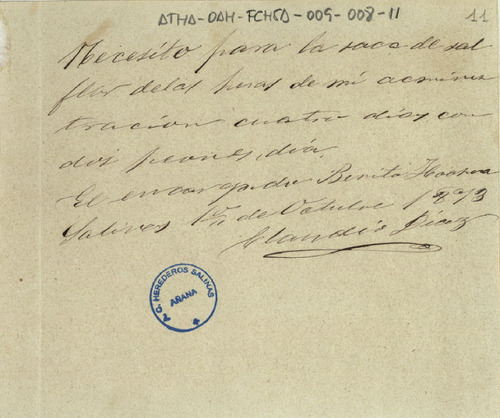 ATHA-DAH-FCHSA-009-008-11
11
Necesito para la saca de sal
flor de las heras de mi adminis
tracion cuatro dias con
dos peones dia.
El encargado Benito
Salinas 1º de Octubre 1893
Claudio Diaz
A.C. HEREDEROS SALINAS
AÑANA